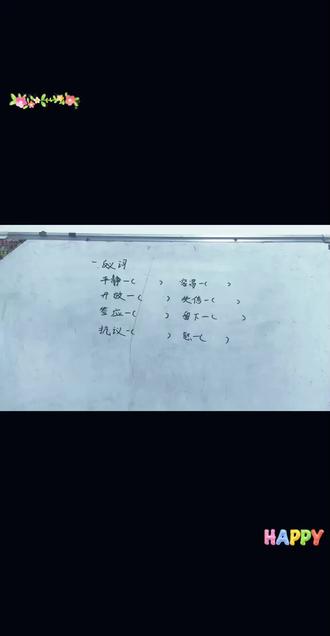 一.反义词
平静—(　　) 容易—(　　)
开放—(　　) 失传—(　　)
答应—(　　) 留下—(　　)
抗议—(　　) 怒—(　　)
HAPPY